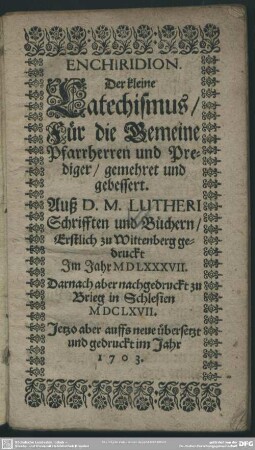 ENCHIRIDION.
Der kleine
Catechismus/
Für die Gemeine
Pfarrherren und Pre-
diger/ gemehret und
gebessert.
Auß D. M. LUTHERI
Schrifften und Büchern/
Erstlich zu Wittenberg ge-
druckt
Im Jahr MDLXXXVII.
Darnach aber nachgedruckt zu
Brieg in Schlesien
MDCLXVII.
Jetzo aber auffs neue übersetzt
und gedruckt im Jahr
1703.
DFG